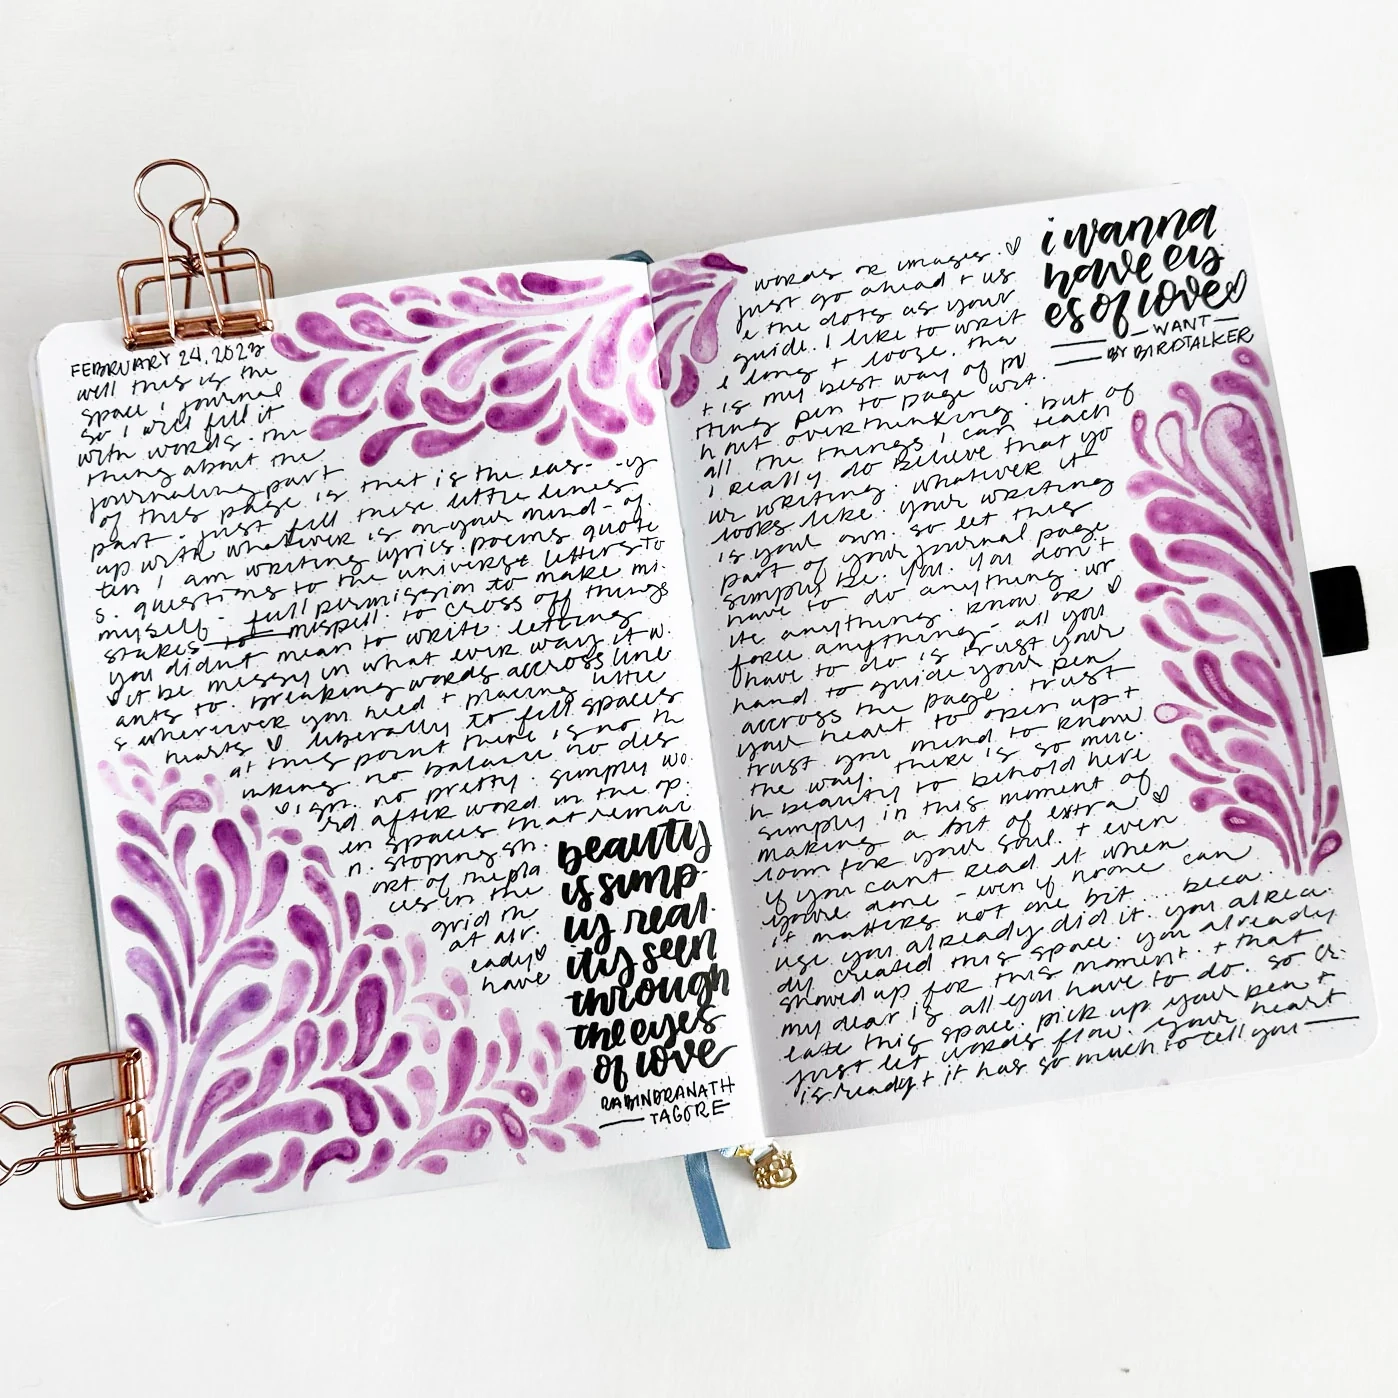 FEBRUARY 24, 2023
well this is the
space i journal
so i will fill it
with words. the
thing about the
journaling part
of this page is that is the eas- -y
part. just fill these little lines
up with whatever is on your mind - of
ten i am writing lyrics. poems quote
s. questions to the universe letters to
myself - full permission to make mi.
stakes to misspill. to cross off things
you didnt mean to write. letting
it be messy in what ever way it w.
ants to. breaking words accross line
s wherever you need + placing little
hearts ♡ liberally to fill spaces
at this point there is no th
inking. no balance no des
♡ ign. no pretty. simply wo.
rd after word in the op.
en spaces that remai
n. stoping sh.
ort of the pla
ces in the
grid th
at alr.
eady♡
have
beauty
is simp-
ly real.
ity seen
through
the eyes
of love
RABINDRANATH
— TAGORE
words or images. ♡
just go ahead + us
e the dots as your
guide. i like to writ
e long + loose. tha
t is my best way of pu
tting pen to page wit.
hout overthinking. but of
all the things i can teach
i really do believe that yo
ur writing. whatever it
looks like. your writing
is your own. so let this
part of your journal page
simply be. you. you don't
have to do anything. wr
ite anything. know or ♡
force anything - all you
have to do is trust your
hand to guide your pen
accross the page. trust
your heart to open up +
trust your mind to know
the way. there is so muc.
h beauty to behold here
simply in this moment of
making a bit of extra ♡
room for your soul. + even
if you can't read it when
you're done - even if no one can
it matters not one bit... beca.
use you already did it. you alrea.
dy created this space. you already
showed up for this moment. + that
my dear is all you have to do. so cr.
eate this space. pick up your pen +
just let words flow. your heart
is ready + it has so much to tell you —
i wanna
have ey
es of love♡
— WANT —
BY BIRDTALKER